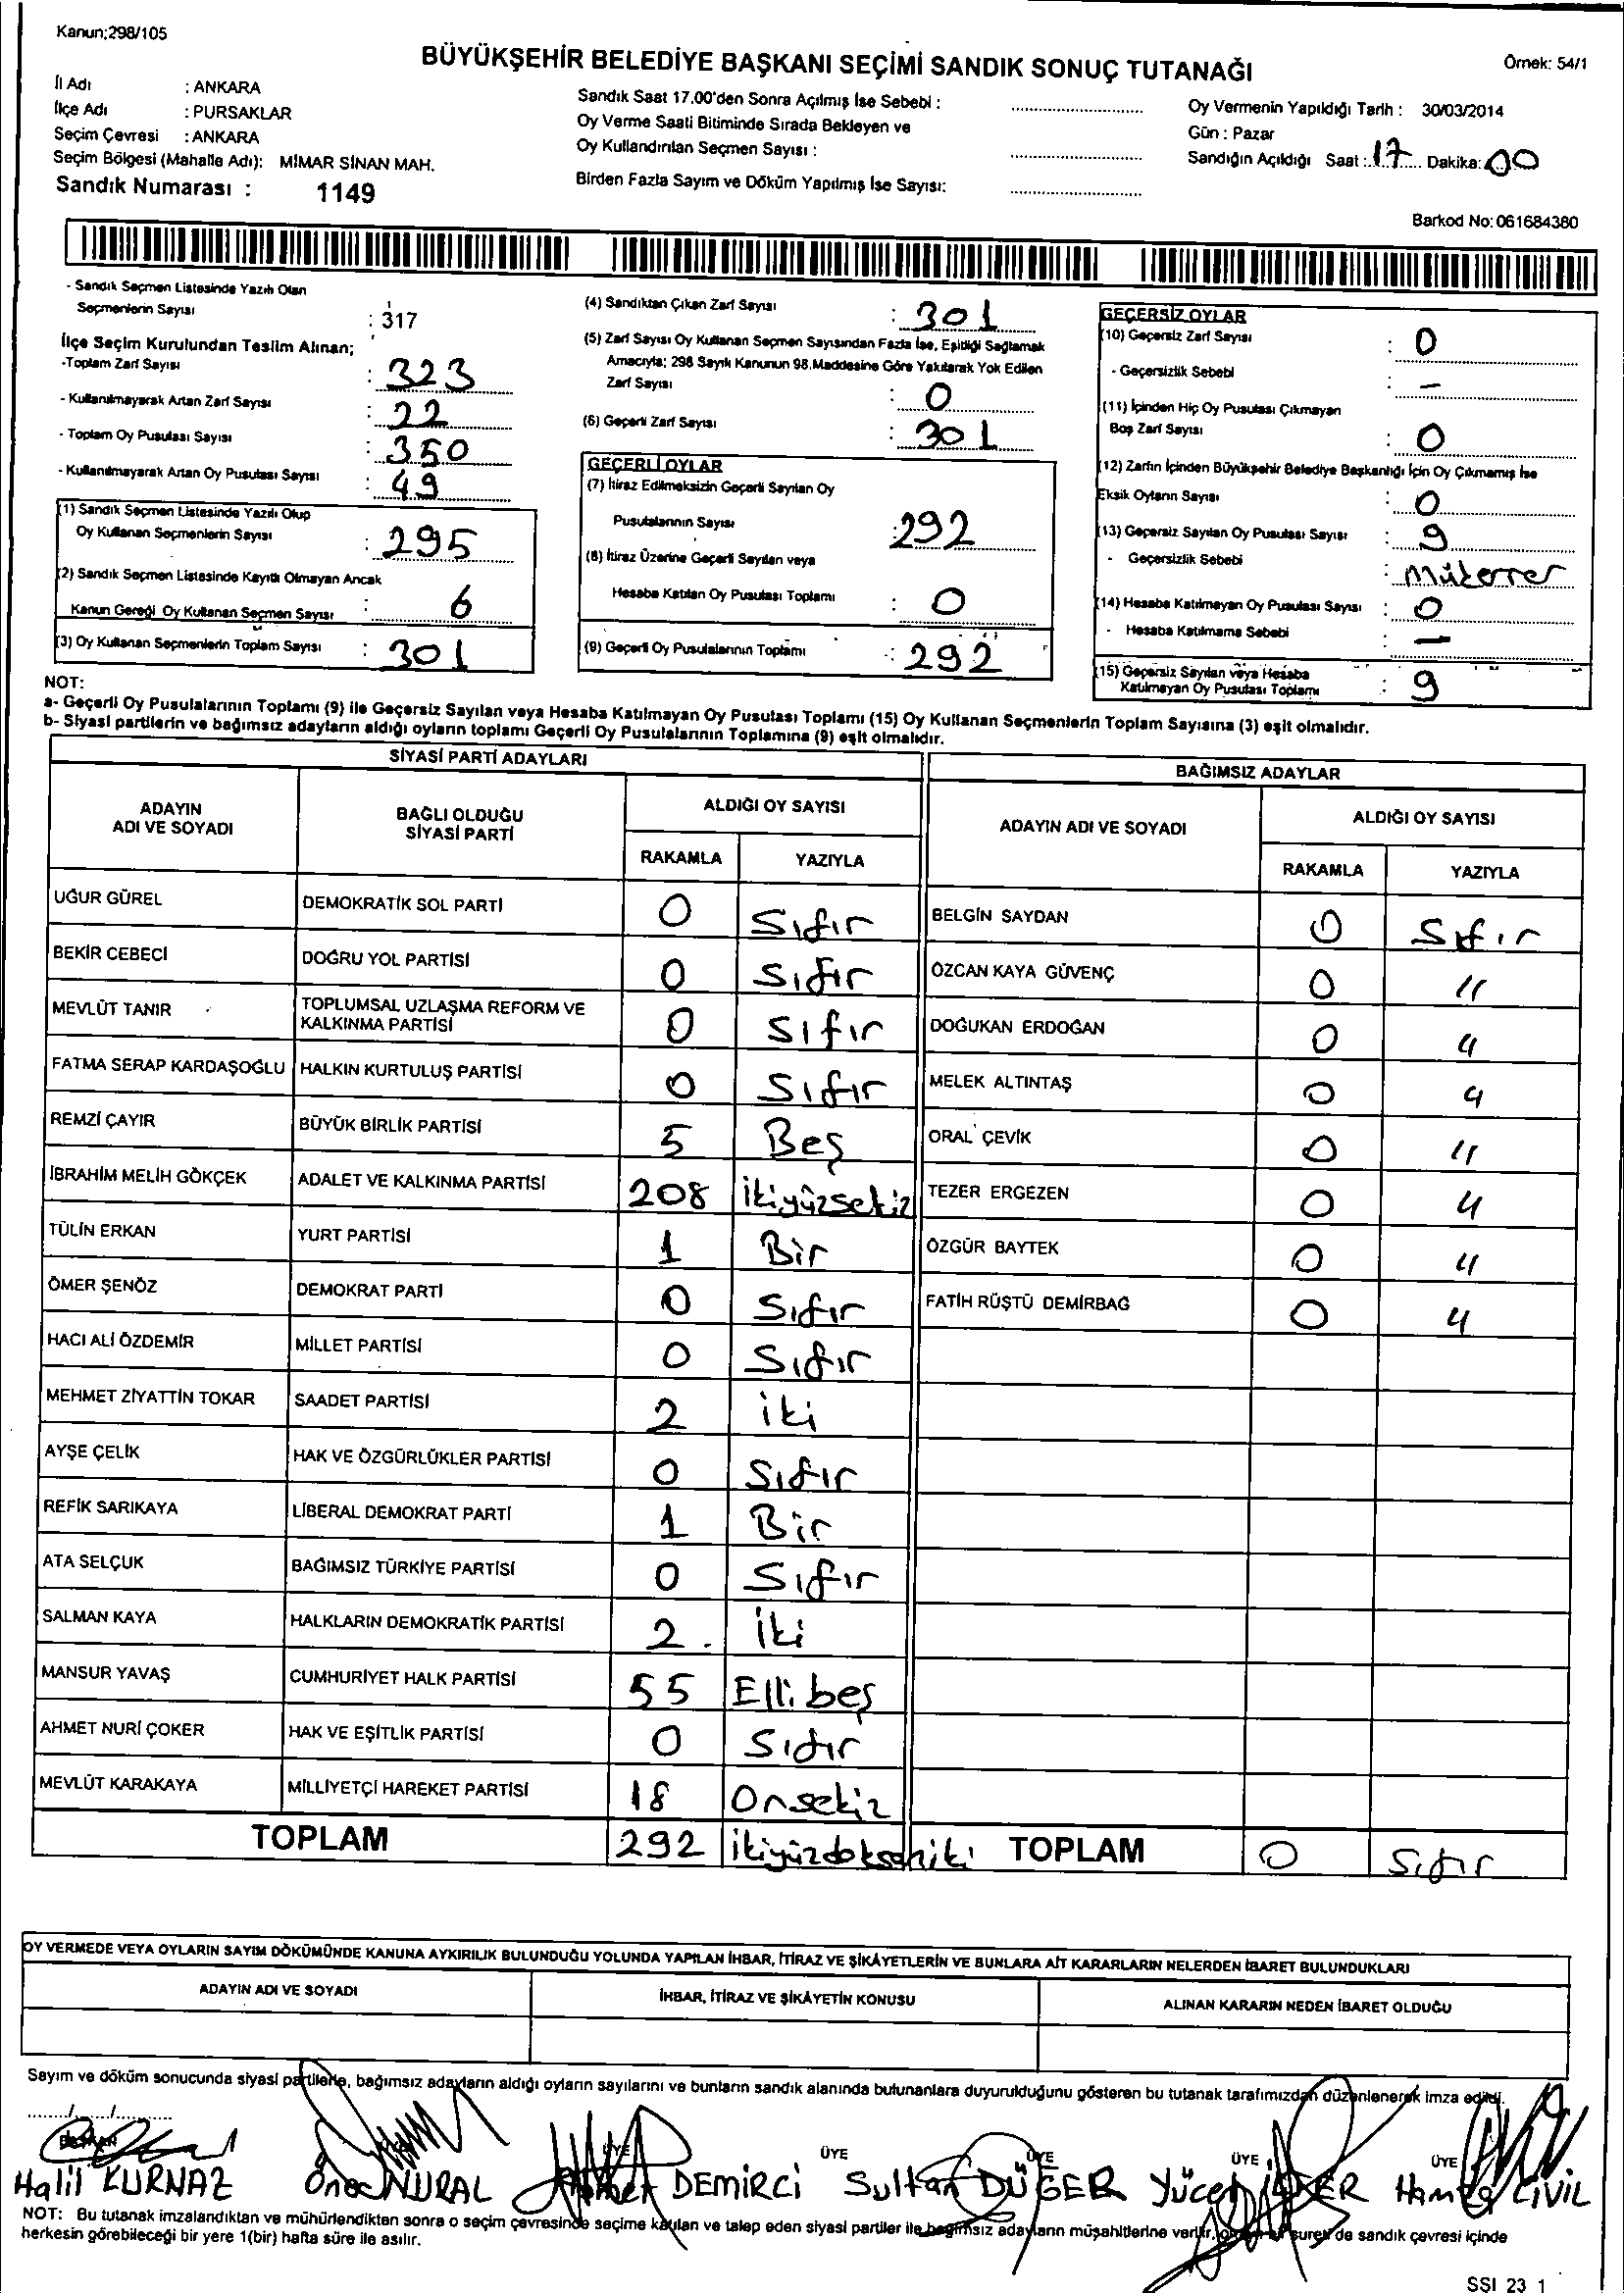 Kanun;298/105
BÜYÜKŞEHİR BELEDİYE BAŞKANI SEÇİMİ SANDIK SONUÇ TUTANAĞI
Örnek: 54/1
İl Adı : ANKARA
İlçe Adı : PURSAKLAR
Seçim Çevresi : ANKARA
Seçim Bölgesi (Mahalle Adı): MİMAR SİNAN MAH.
Sandık Numarası : 1149
Sandık Saat 17.00'den Sonra Açılmış İse Sebebi :
Oy Verme Saati Bitiminde Sırada Bekleyen ve
Oy Kullandırılan Seçmen Sayısı :
Birden Fazla Sayım ve Döküm Yapılmış İse Sayısı:
Oy Vermenin Yapıldığı Tarih : 30/03/2014
Gün : Pazar
Sandığın Açıldığı Saat : 17 Dakika: 00
Barkod No: 061684380
- Sandık Seçmen Listesinde Yazılı Olan
Seçmenlerin Sayısı : 317
İlçe Seçim Kurulundan Teslim Alınan;
-Toplam Zarf Sayısı : 323
- Kullanılmayarak Artan Zarf Sayısı : 22
- Toplam Oy Pusulası Sayısı : 350
- Kullanılmayarak Artan Oy Pusulası Sayısı : 49
(1) Sandık Seçmen Listesinde Yazılı Olup
Oy Kullanan Seçmenlerin Sayısı : 295
(2) Sandık Seçmen Listesinde Kayıtlı Olmayan Ancak
Kanun Gereği Oy Kullanan Seçmen Sayısı : 6
(3) Oy Kullanan Seçmenlerin Toplam Sayısı : 301
(4) Sandıktan Çıkan Zarf Sayısı : 301
(5) Zarf Sayısı Oy Kullanan Seçmen Sayısından Fazla İse, Eşitliği Sağlamak
Amacıyla; 298 Sayılı Kanunun 98.Maddesine Göre Yakılarak Yok Edilen
Zarf Sayısı : 0
(6) Geçerli Zarf Sayısı : 301
GEÇERLİ OYLAR
(7) İtiraz Edilmeksizin Geçerli Sayılan Oy
Pusulalarının Sayısı : 292
(8) İtiraz Üzerine Geçerli Sayılan veya
Hesaba Katılan Oy Pusulası Toplamı : 0
(9) Geçerli Oy Pusulalarının Toplamı : 292
GEÇERSİZ OYLAR
(10) Geçersiz Zarf Sayısı : 0
- Geçersizlik Sebebi : -
(11) İçinden Hiç Oy Pusulası Çıkmayan
Boş Zarf Sayısı : 0
(12) Zarfın İçinden Büyükşehir Belediye Başkanlığı İçin Oy Çıkmamış İse
Eksik Oyların Sayısı : 0
(13) Geçersiz Sayılan Oy Pusulası Sayısı : 9
- Geçersizlik Sebebi : Mükerrer
(14) Hesaba Katılmayan Oy Pusulası Sayısı : 0
- Hesaba Katılmama Sebebi : -
(15) Geçersiz Sayılan veya Hesaba
Katılmayan Oy Pusulası Toplamı : 9
NOT:
a- Geçerli Oy Pusulalarının Toplamı (9) ile Geçersiz Sayılan veya Hesaba Katılmayan Oy Pusulası Toplamı (15) Oy Kullanan Seçmenlerin Toplam Sayısına (3) eşit olmalıdır.
b- Siyasi partilerin ve bağımsız adayların aldığı oyların toplamı Geçerli Oy Pusulalarının Toplamına (9) eşit olmalıdır.
SİYASİ PARTİ ADAYLARI
ADAYIN ADI VE SOYADI BAĞLI OLDUĞU SİYASİ PARTİ ALDIĞI OY SAYISI
RAKAMLA YAZIYLA
UĞUR GÜREL DEMOKRATİK SOL PARTİ 0 Sıfır
BEKİR CEBECİ DOĞRU YOL PARTİSİ 0 Sıfır
MEVLÜT TANIR TOPLUMSAL UZLAŞMA REFORM VE KALKINMA PARTİSİ 0 Sıfır
FATMA SERAP KARDAŞOĞLU HALKIN KURTULUŞ PARTİSİ 0 Sıfır
REMZİ ÇAYIR BÜYÜK BİRLİK PARTİSİ 5 Beş
İBRAHİM MELİH GÖKÇEK ADALET VE KALKINMA PARTİSİ 208 ikiyüzsekiz
TÜLİN ERKAN YURT PARTİSİ 1 Bir
ÖMER ŞENÖZ DEMOKRAT PARTİ 0 Sıfır
HACI ALİ ÖZDEMİR MİLLET PARTİSİ 0 Sıfır
MEHMET ZİYATTİN TOKAR SAADET PARTİSİ 2 iki
AYŞE ÇELİK HAK VE ÖZGÜRLÜKLER PARTİSİ 0 Sıfır
REFİK SARIKAYA LİBERAL DEMOKRAT PARTİ 1 Bir
ATA SELÇUK BAĞIMSIZ TÜRKİYE PARTİSİ 0 Sıfır
SALMAN KAYA HALKLARIN DEMOKRATİK PARTİSİ 2 İki
MANSUR YAVAŞ CUMHURİYET HALK PARTİSİ 55 Ellibeş
AHMET NURİ ÇOKER HAK VE EŞİTLİK PARTİSİ 0 Sıfır
MEVLÜT KARAKAYA MİLLİYETÇİ HAREKET PARTİSİ 18 Onsekiz
TOPLAM 292 ikiyüzdoksaniki
BAĞIMSIZ ADAYLAR
ADAYIN ADI VE SOYADI ALDIĞI OY SAYISI
RAKAMLA YAZIYLA
BELGİN SAYDAN 0 Sıfır
ÖZCAN KAYA GÜVENÇ 0 "
DOĞUKAN ERDOĞAN 0 "
MELEK ALTINTAŞ 0 "
ORAL ÇEVİK 0 "
TEZER ERGEZEN 0 "
ÖZGÜR BAYTEK 0 "
FATİH RÜŞTÜ DEMİRBAĞ 0 "
TOPLAM 0 Sıfır
OY VERMEDE VEYA OYLARIN SAYIM DÖKÜMÜNDE KANUNA AYKIRILIK BULUNDUĞU YOLUNDA YAPILAN İHBAR, İTİRAZ VE ŞİKÂYETLERİN VE BUNLARA AİT KARARLARIN NELERDEN İBARET BULUNDUKLARI
ADAYIN ADI VE SOYADI İHBAR, İTİRAZ VE ŞİKÂYETİN KONUSU ALINAN KARARIN NEDEN İBARET OLDUĞU
Sayım ve döküm sonucunda siyasi partilerle, bağımsız adayların aldığı oyların sayılarını ve bunların sandık alanında bulunanlara duyurulduğunu gösteren bu tutanak tarafımızdan düzenlenerek imza edildi.
....../....../............
BAŞKAN ÜYE ÜYE ÜYE ÜYE ÜYE
Halil KURNAZ NURAL DEMİRCİ Sultan DÜĞER Yücel Hamza CİVİL
NOT: Bu tutanak imzalandıktan ve mühürlendikten sonra o seçim çevresinde seçime katılan ve talep eden siyasi partiler ile bağımsız adayların müşahitlerine verilir, suret de sandık çevresi içinde
herkesin görebileceği bir yere 1(bir) hafta süre ile asılır.
SSI 23 1